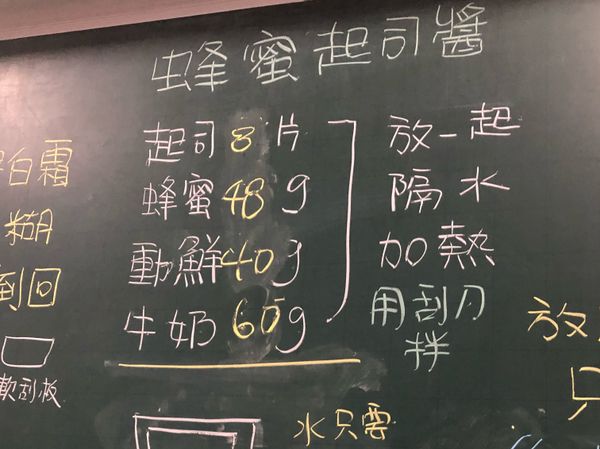 蜂蜜起司醬
起司8片
蜂蜜48g
動鮮40g
牛奶60g
放一起
隔水
加熱
用刮刀
拌
白霜
糊
到回
軟刮板
放
只
水只需